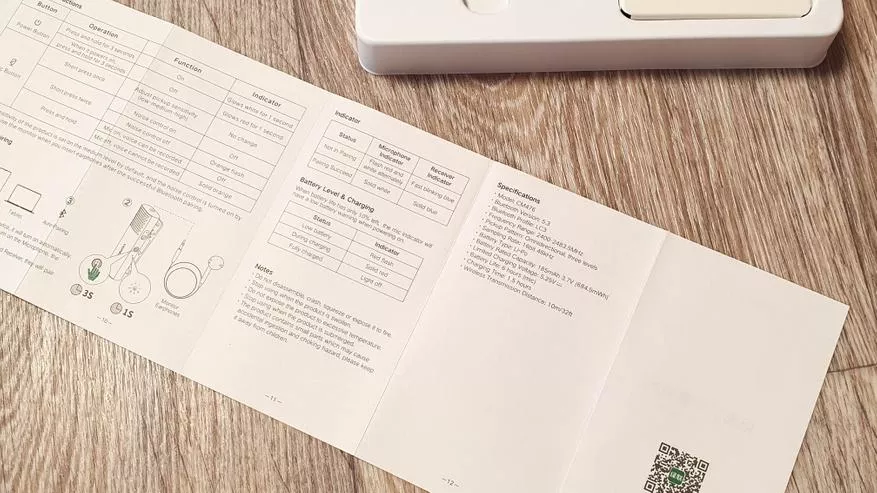 Button
Operation
Function
Indicator
Power Button
Press and hold for 3 seconds
On
Glows white for 1 second
When it powers on,
press and hold for 3 seconds
Off
Glows red for 1 second
Button
Short press once
Adjust pickup sensitivity
(low-medium-high)
No change
Short press twice
Noise control on
Off
Noise control off
Orange flash
Press and hold
Mic on, voice can be recorded
Off
Mic off, voice cannot be recorded
Solid orange
of the product is set on the medium level by default, and the noise control is turned on by
the monitor when you insert earphones after the successful Bluetooth pairing.
Tablet
③
Auto Pairing
②
3S
1S
Monitor
Earphones
I will turn on automatically.
on the Microphone, the
Receiver, they will pair
—10—
Indicator
Status
Microphone
Indicator
Receiver
Indicator
Not in Pairing
Flash red and
white alternately
Fast blinking blue
Pairing Succeed
Solid white
Solid blue
Battery Level & Charging
When battery life has only 10% left, the mic indicator will
have a low battery warning when powering on.
Status
Indicator
Low battery
Red flash
During charging
Solid red
Fully charged
Light off
Notes
· Do not disassemble, crash, squeeze or expose it to fire.
· Stop using when the product is swollen.
· Do not expose the product to excessive temperature.
· Stop using when the product is submerged.
· The product contains small parts which may cause
accidental ingestion and choking hazard, please keep
it away from children.
—11—
Specifications
· Model: CM476
· Bluetooth Version: 5.3
· Bluetooth Profile: LC3
· Frequency Range: 2400-2483.5MHz
· Pickup Pattern: Omnidirectional, three levels
· Sampling Rate: 16Bit 48kHz
· Battery Type: Li-Po
· Battery Rated Capacity: 185mAh 3.7V (684.5mWh)
· Limited Charging Voltage: 5.25V
· Battery Life: 6 hours (mic)
· Charging Time: 1.5 hours
· Wireless Transmission Distance: 10m/32ft
—12—